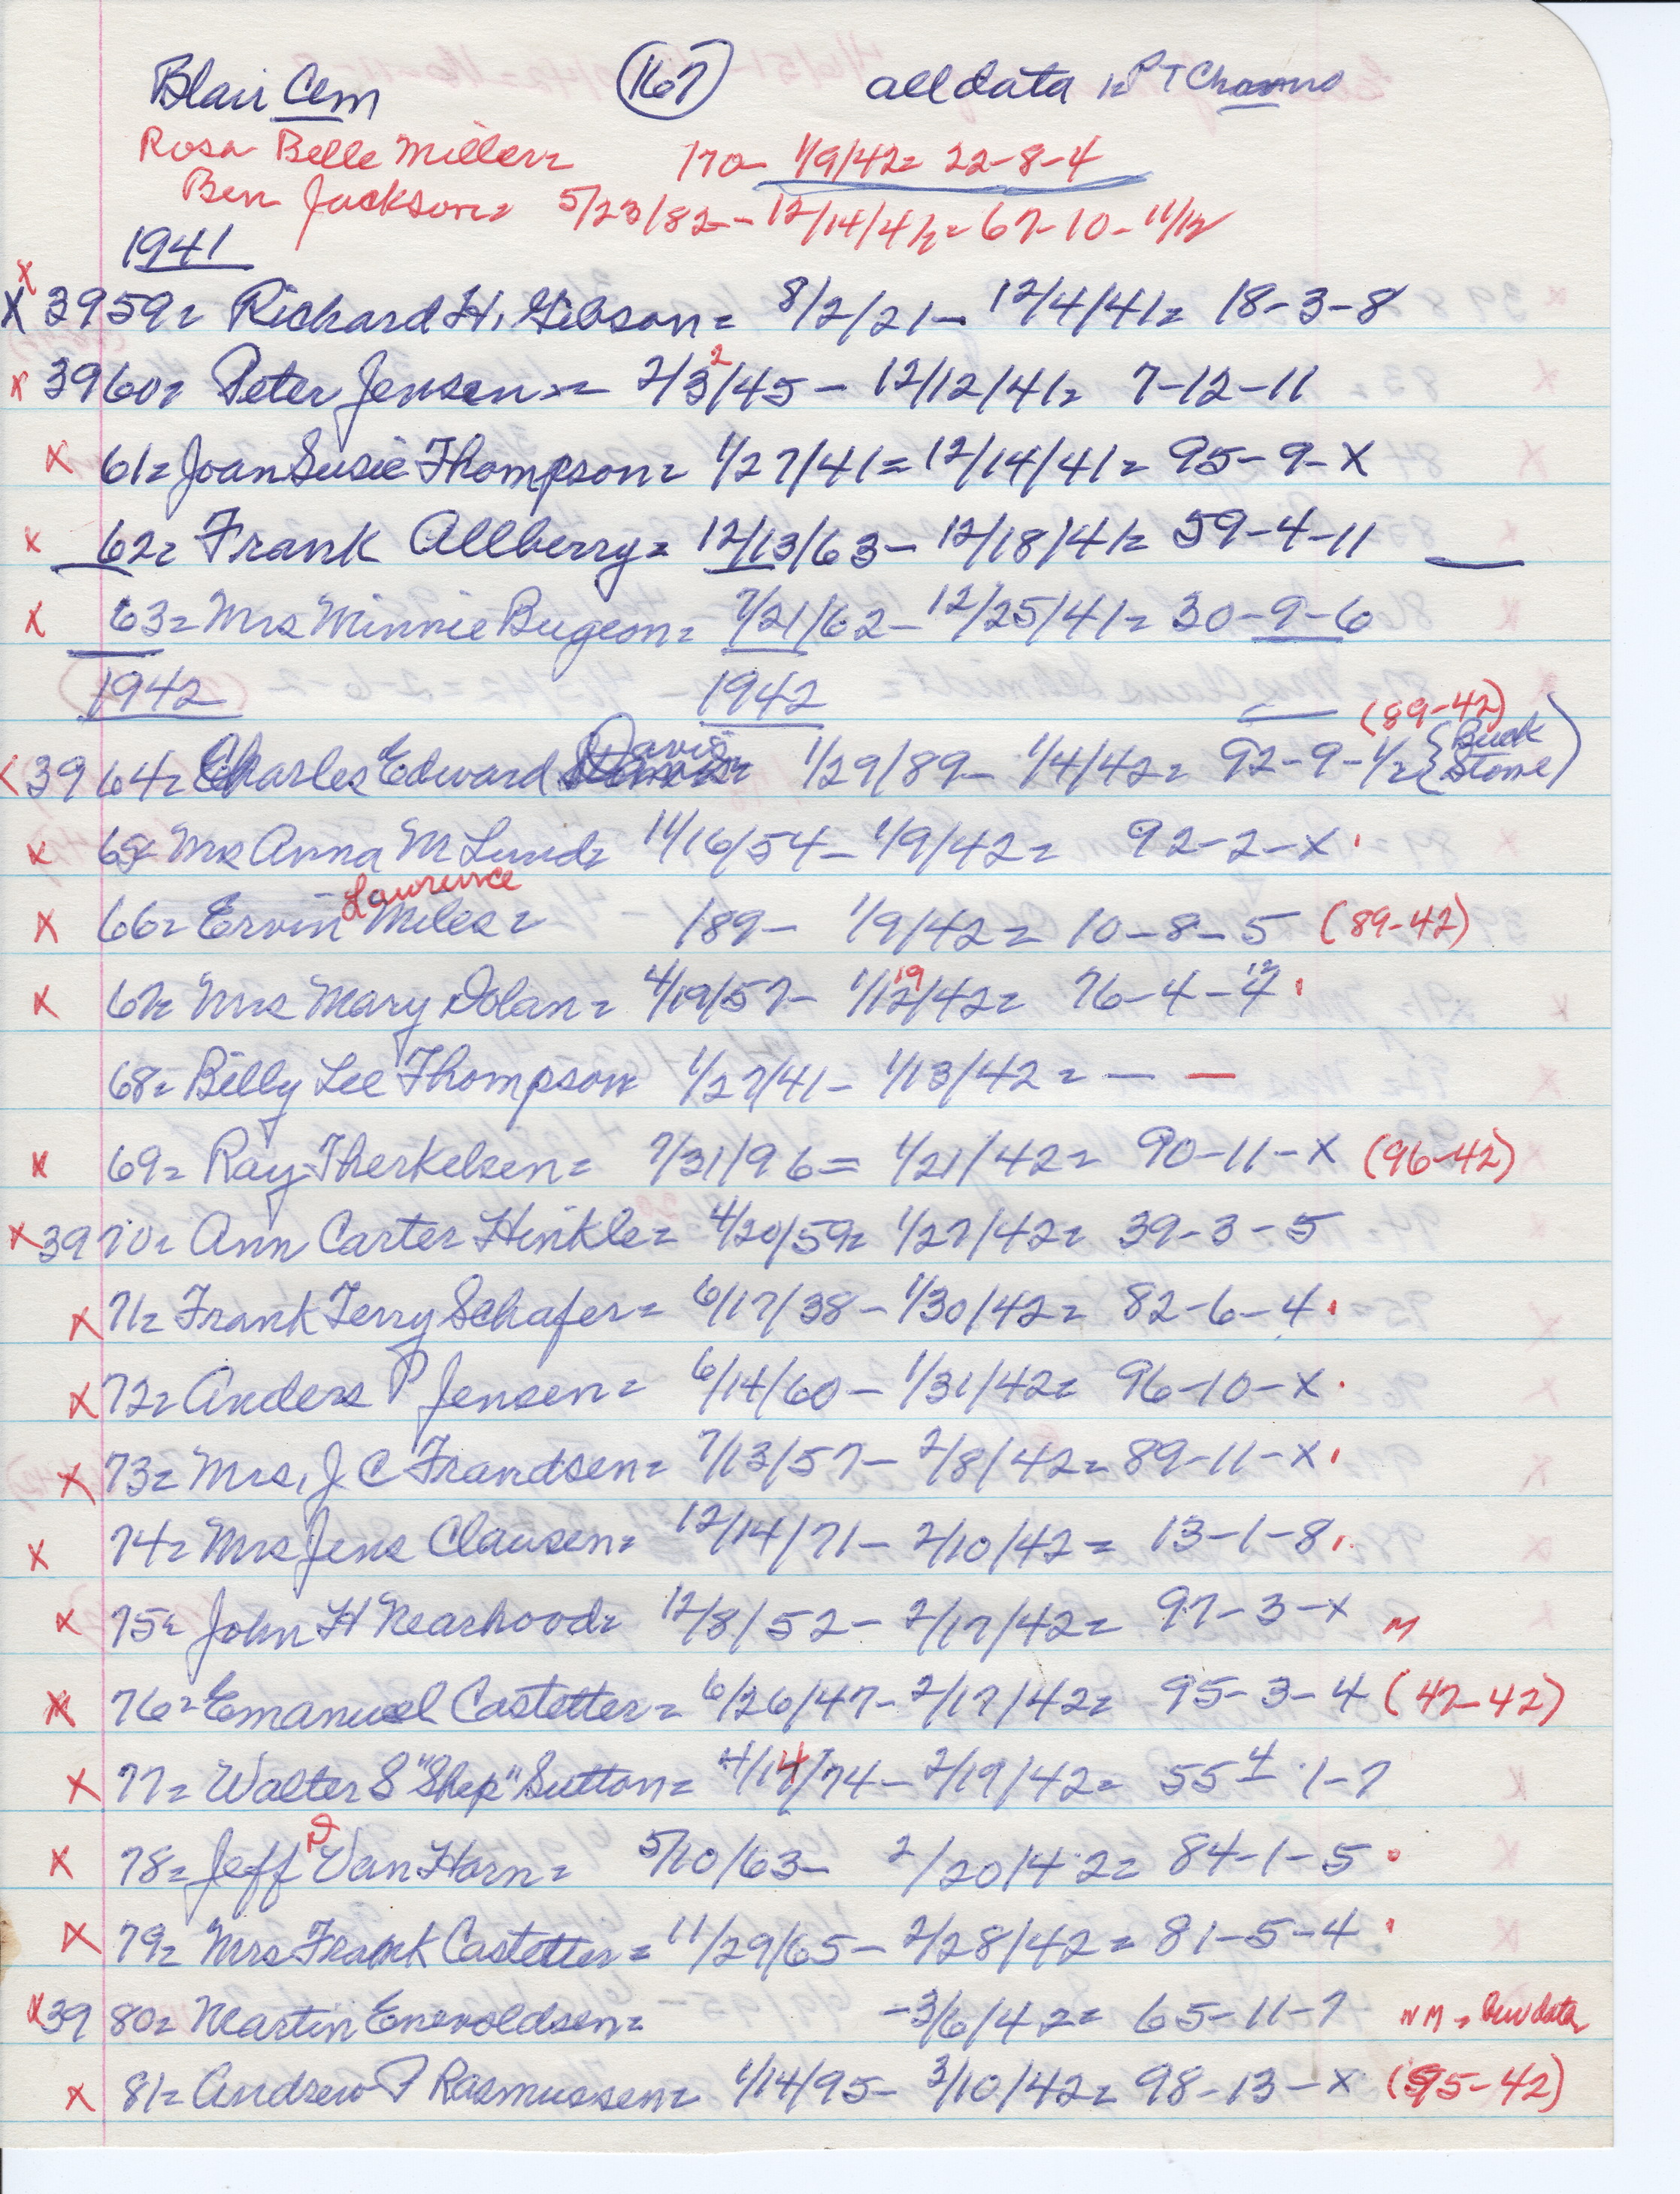 Blair Cem (167) all data in PT Chrono
Rosa Belle Miller= 170- 1/9/42= 22-8-4
Ben Jackson= 5/23/82-- 12/14/41= 67-10-11/12
1941
X X 3959= Richard H. Gibson= 8/2/21- 12/4/41= 18-3-8
x 3960= Peter Jensen= 2/3/45- 12/12/41= 7-12-11
2
x 61= Joan Susie Thompson= 1/27/41= 12/14/41= 95-9-X
x 62= Frank Allberry= 12/13/63- 12/18/41= 59-4-11 —
x 63= Mrs Minnie Bugeon= 7/21/62- 12/25/41= 30-9-6
1942 1942 — (89-42)
3964= Charles Edward Davis 1/29/89- 1/4/42= 92-9-1/2 {Buck Stone)
x 65= Mrs Anna M Lund= 11/16/54- 1/9/42= 92-2-X
Lawrence
x 66= Ervin Miles= 189- 1/9/42= 10-8-5 (89-42)
19 12
x 67= Mrs Mary Dolan= 4/19/57- 1/12/42= 76-4-4
68= Billy Lee Thompson 1/27/41- 1/13/42= — —
x 69= Ray Therkelsen= 7/31/96= 1/21/42= 90-11-X (96-42)
x 3970= Ann Carter Hinkle= 4/20/59= 1/27/42= 39-3-5
x 71= Frank Terry Schafer= 6/17/38- 1/30/42= 82-6-4
x 72= Anders P Jensen= 6/14/60- 1/31/42= 96-10-X
x 73= Mrs. J C Frandsen= 7/13/57- 2/8/42= 89-11-X
x 74= Mrs Jens Clausen= 12/14/71- 2/10/42= 13-1-8
x 75= John H Nearhood= 12/8/52- 2/17/42= 97-3-X M
x 76= Emanuel Castetter= 6/26/47- 2/17/42= 95-3-4 (47-42)
x 77= Walter S "Shep" Sutton= 4/14/74- 2/19/42= 55 4 1-7
x 78= Jeff D Van Horn= 5/10/63- 2/20/42= 84-1-5
x 79= Mrs Frank Castetter= 11/29/65- 2/28/42= 81-5-4
x 3980= Martin Enevoldsen= -3/6/42= 65-11-7 NM = Bur data
x 81= Andrew P Rasmussen= 1/14/95- 3/10/42= 98-13-X (95-42)